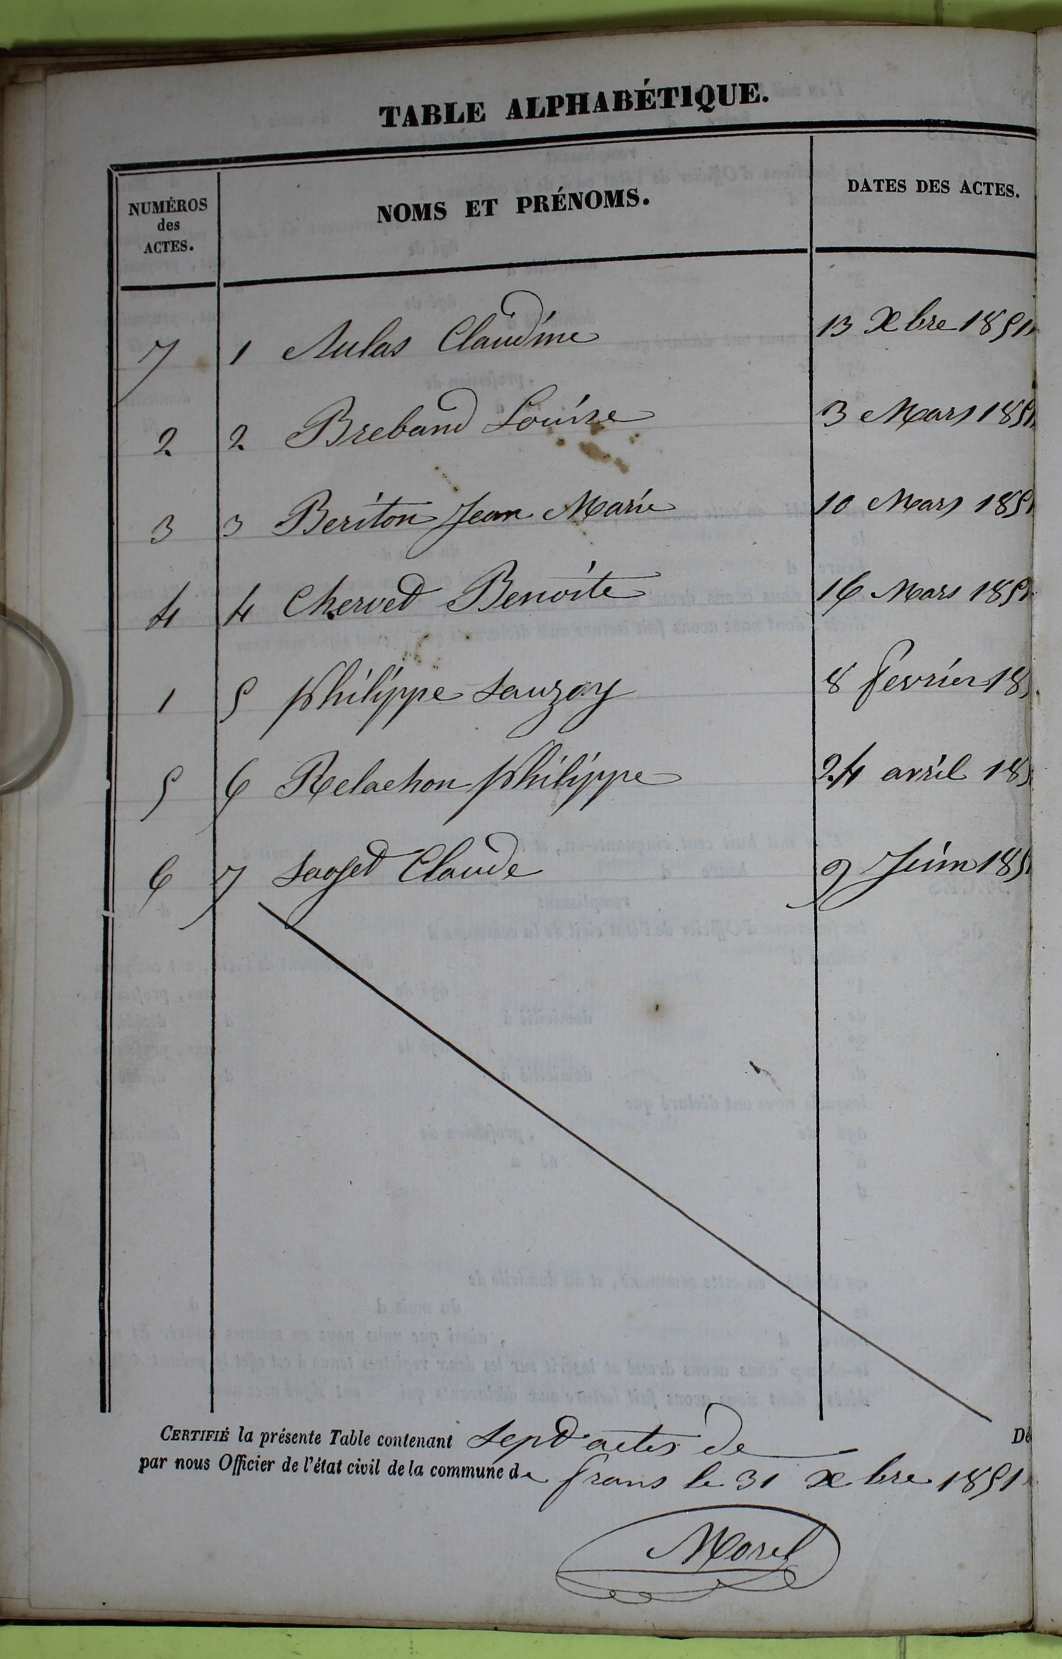 TABLE ALPHABÉTIQUE.
NUMÉROS des ACTES. NOMS ET PRÉNOMS. DATES DES ACTES.
7 1 Aulas Claudine 13 Xbre 1851
2 2 Breband Louise 3 Mars 1851
3 3 Beriton Jean Marie 10 Mars 1851
4 4 Chervet Benoite 16 Mars 1851
1 5 Philippe Sauzay 8 fevrier 18
5 6 Relachon Philippe 24 avril 185
6 7 Claude 9 Juin 185
CERTIFIÉ la présente Table contenant Sept actes de Dé
par nous Officier de l'état civil de la commune de frans le 31 Xbre 1851
Morel